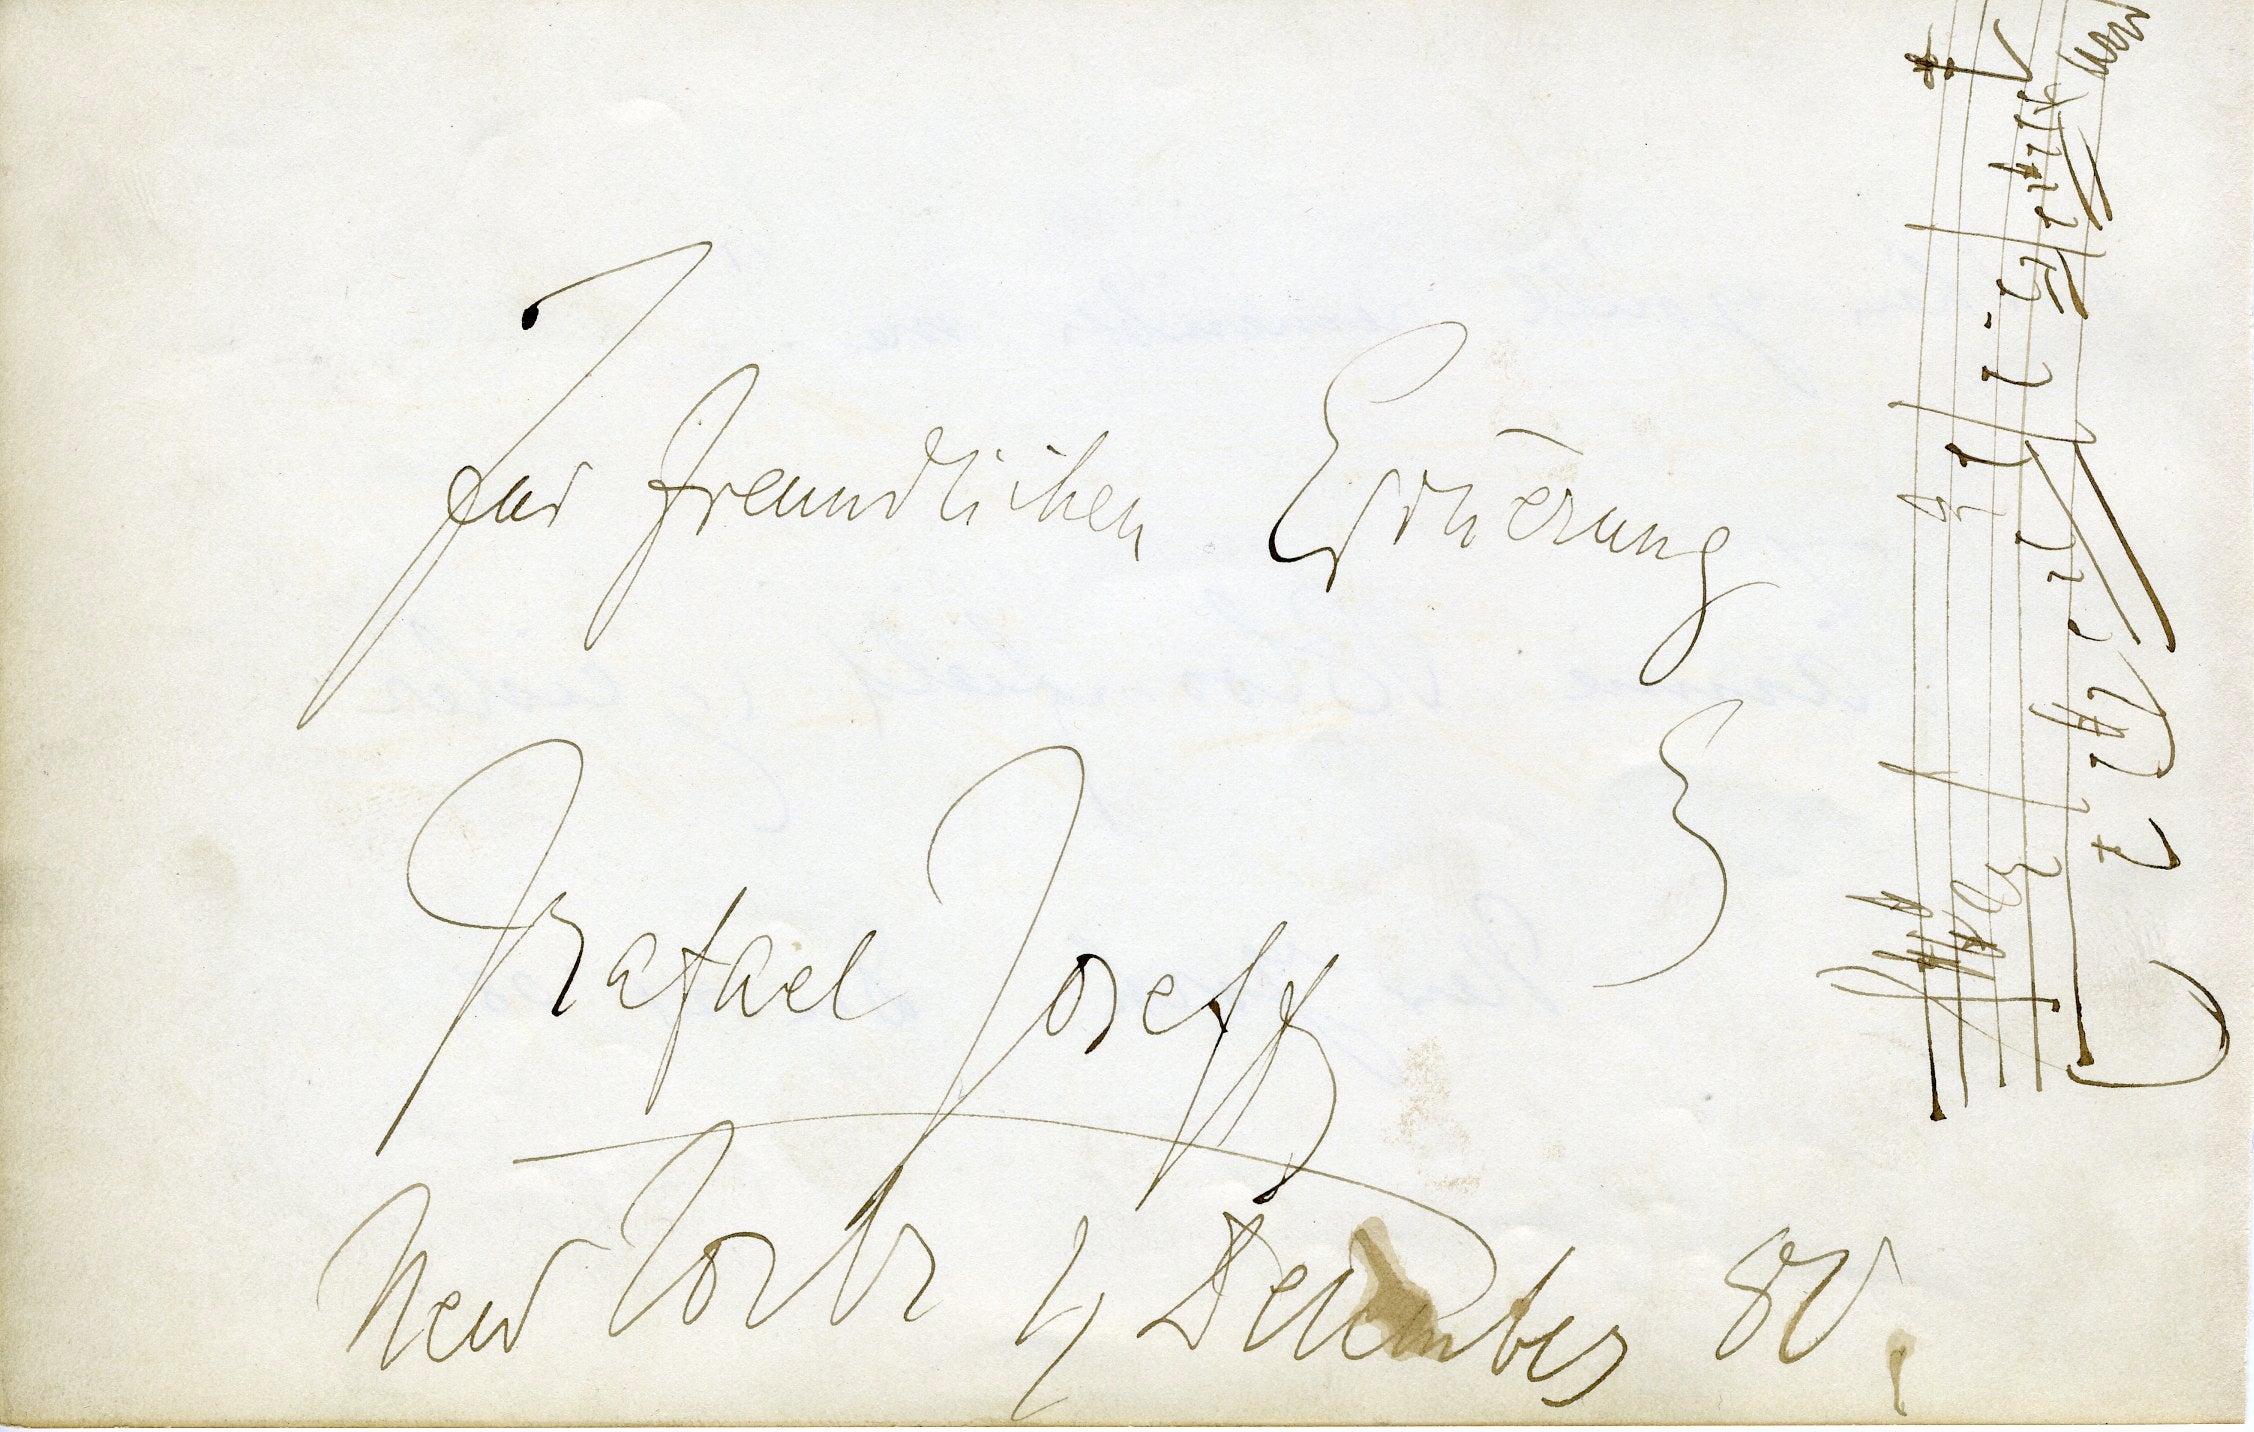 Zur freundlichen Erin̄erung
Rafael Joseffy
New York 4 December 80.